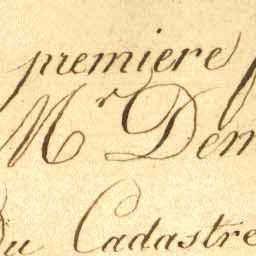 premiere
Mr Dem
Du Cadastre